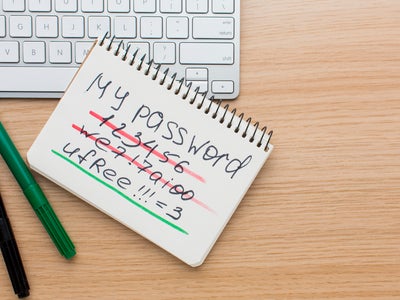 My password
123456
we7!7a!00
ufRee!!!=3